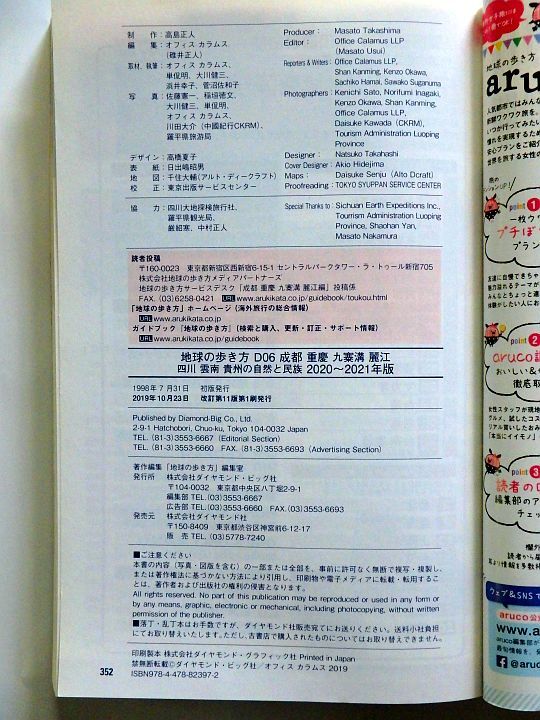 制 作：高島正人
編 集：オフィス カラムス
（碓井正人）
取材、執筆：オフィス カラムス、
単侃明、大川健三、
浜井幸子、菅沼佐和子
写 真：佐藤憲一、稲垣徳文、
大川健三、単侃明、
オフィス カラムス、
川田大介（中國紀行CKRM）、
羅平県旅游局
デザイン：高橋夏子
表 紙：日出嶋昭男
地 図：千住大輔（アルト・ディークラフト）
校 正：東京出版サービスセンター
協 力：四川大地探検旅行社、
羅平県観光局、
厳韶塞、中村正人
Producer： Masato Takashima
Editor： Office Calamus LLP
(Masato Usui)
Reporters & Writers： Office Calamus LLP,
Shan Kanming, Kenzo Okawa,
Sachiko Hamai, Sawako Suganuma
Photographers： Kenichi Sato, Norifumi Inagaki,
Kenzo Okawa, Shan Kanming,
Office Calamus LLP,
Daisuke Kawada (CKRM),
Tourism Administration Luoping
Province
Designer： Natsuko Takahashi
Cover Designer： Akio Hidejima
Maps： Daisuke Senju (Alto Dcraft)
Proofreading： TOKYO SYUPPAN SERVICE CENTER
Special Thanks to： Sichuan Earth Expeditions Inc.,
Tourism Administration Luoping
Province, Shaohan Yan,
Masato Nakamura
読者投稿
〒160-0023 東京都新宿区西新宿6-15-1 セントラルパークタワー・ラ・トゥール新宿705
株式会社地球の歩き方メディアパートナーズ
地球の歩き方サービスデスク「成都 重慶 九寨溝 麗江編」投稿係
FAX. (03)6258-0421 URL www.arukikata.co.jp/guidebook/toukou.html
「地球の歩き方」ホームページ（海外旅行の総合情報）
URL www.arukikata.co.jp
ガイドブック『地球の歩き方』（検索と購入、更新・訂正・サポート情報）
URL www.arukikata.co.jp/guidebook
地球の歩き方 D06 成都 重慶 九寨溝 麗江
四川 雲南 貴州の自然と民族 2020～2021年版
1998年 7月31日 初版発行
2019年10月23日 改訂第11版第1刷発行
Published by Diamond-Big Co., Ltd.
2-9-1 Hatchobori, Chuo-ku, Tokyo 104-0032 Japan
TEL. (81-3) 3553-6667 (Editorial Section)
TEL. (81-3) 3553-6660 FAX. (81-3) 3553-6693 (Advertising Section)
著作編集 「地球の歩き方」編集室
発行所 株式会社ダイヤモンド・ビッグ社
〒104-0032 東京都中央区八丁堀2-9-1
編集部 TEL.(03)3553-6667
広告部 TEL.(03)3553-6660 FAX.(03)3553-6693
発売元 株式会社ダイヤモンド社
〒150-8409 東京都渋谷区神宮前6-12-17
販 売 TEL.(03)5778-7240
■ご注意ください
本書の内容（写真・図版を含む）の一部または全部を、事前に許可なく無断で複写・複製し、
または著作権法に基づかない方法により引用し、印刷物や電子メディアに転載・転用するこ
とは、著作者および出版社の権利の侵害となります。
All rights reserved. No part of this publication may be reproduced or used in any form or
by any means, graphic, electronic or mechanical, including photocopying, without written
permission of the publisher.
■落丁・乱丁本はお手数ですが、ダイヤモンド社販売宛てにお送りください。送料小社負担
にてお取り替えいたします。ただし、古書店で購入されたものについてはお取り替えできません。
印刷製本 株式会社ダイヤモンド・グラフィック社 Printed in Japan
禁無断転載©ダイヤモンド・ビッグ社／オフィス カラムス 2019
ISBN978-4-478-82397-2
352
地球の歩き方
aruco
point 1
一枚ウ
プチぼう
プラン
point 2
aruco
おいしい
徹底取
point 3
読者の
編集部のア
チェッ
ウェブ＆SNSで
aruco公
www.a
@aruc